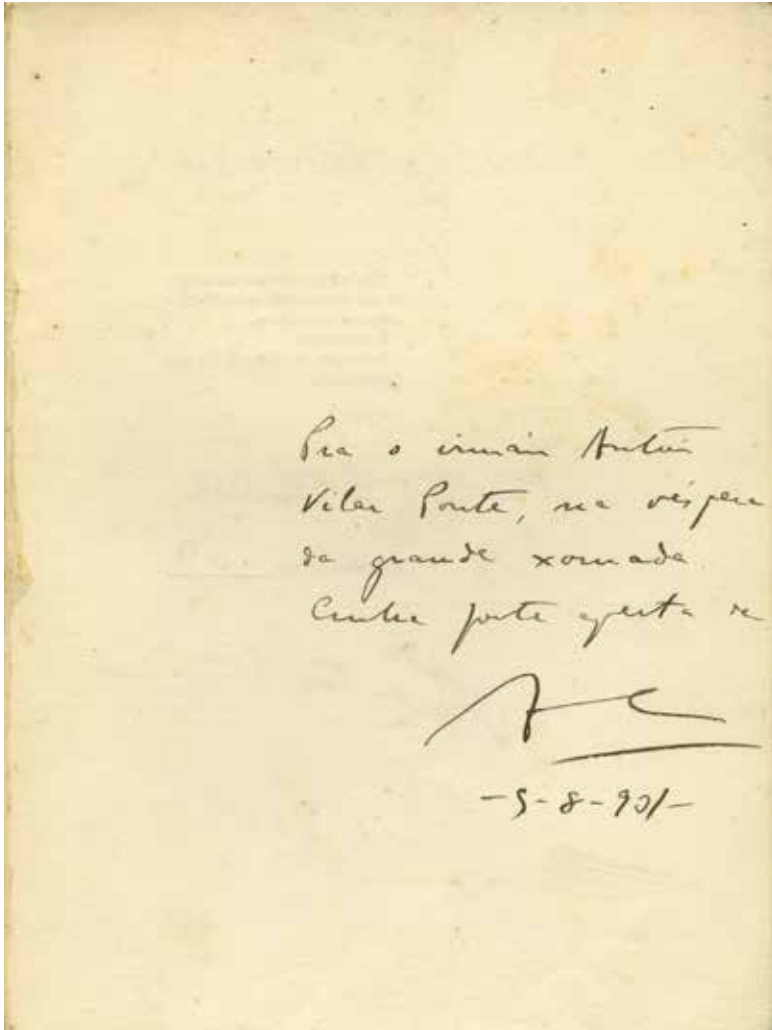 Pra o irmán Antón
Vilar Ponte, na véspera
da grande xornada.
Cunha forte aperta de
-5-8-931-